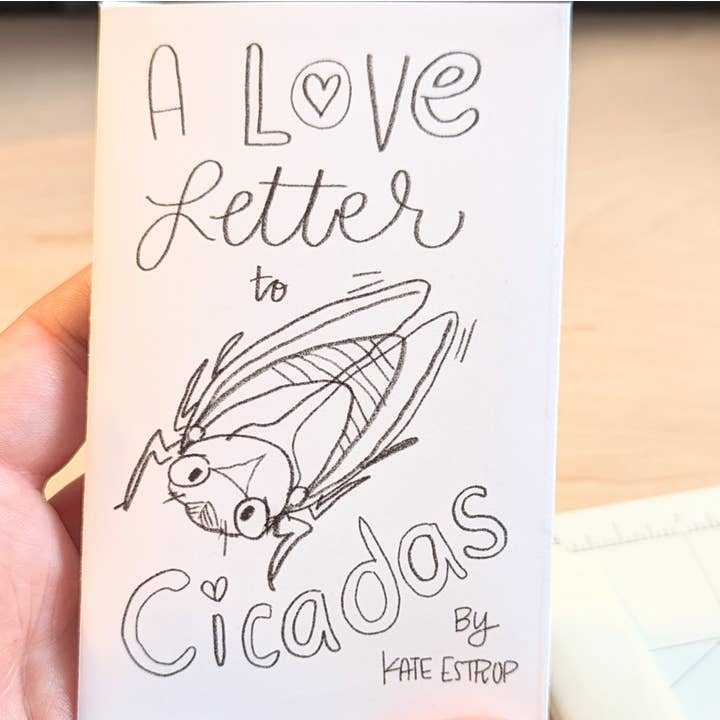 A LOVE
Letter
to
Cicadas
By
KATE ESTROP